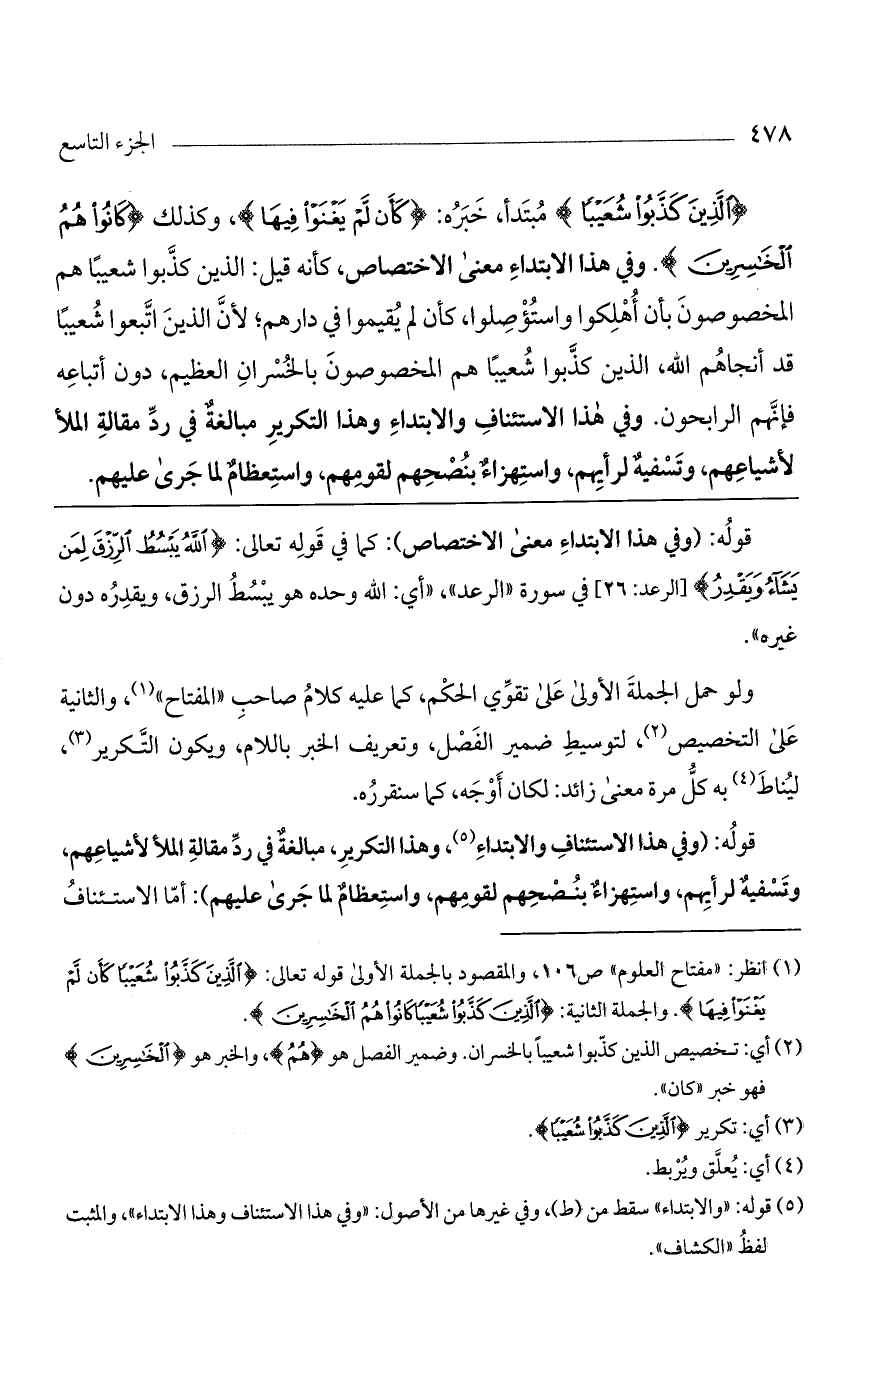 ٤٧٨ الجزء التاسع
﴿ٱلَّذِينَ كَذَّبُوا۟ شُعَيْبًا﴾ مُبتَدأ، خَبَرُه: ﴿كَأَن لَّمْ يَغْنَوْا۟ فِيهَا﴾، وكذلك ﴿كَانُوا۟ هُمُ
ٱلْخَٰسِرِينَ﴾. وفي هذا الابتداءِ معنىٰ الاختصاص، كأنه قيل: الذين كذَّبوا شعيبًا هم
المخصوصونَ بأن أُهْلِكوا واستُؤْصِلوا، كأن لم يُقيموا في دارهم؛ لأنَّ الذينَ اتَّبعوا شُعيبًا
قد أنجاهُم الله، الذين كذَّبوا شُعيبًا هم المخصوصونَ بالخُسْرانِ العظيم، دون أتباعِه
فإنَّهم الرابحون. وفي هٰذا الاستئنافِ والابتداءِ وهذا التكريرِ مبالغةٌ في ردِّ مقالةِ الملأ
لأشياعِهم، وتَسْفيهٌ لرأيِهم، واستِهزاءٌ بنُصْحِهم لقومِهم، واستِعظامٌ لما جَرىٰ عليهم.
قولُه: (وفي هذا الابتداءِ معنىٰ الاختصاص): كما في قَولِه تعالى: ﴿ٱللَّهُ يَبْسُطُ ٱلرِّزْقَ لِمَن
يَشَآءُ وَيَقْدِرُ﴾ [الرعد: ٢٦] في سورة «الرعد»، «أي: الله وحده هو يبْسُطُ الرزق، ويقدِرُه دون
غيره».
ولو حمل الجملةَ الأولىٰ عَلىٰ تقوِّي الحكْم، كما عليه كلامُ صاحبِ «المفتاح»(١)، والثانية
عَلىٰ التخصيص(٢)، لتوسيطِ ضمير الفَصْل، وتعريف الخبر باللام، ويكون التَّكرير(٣)،
ليُناطَ(٤) به كلَّ مرة معنىٰ زائد: لكان أوْجَه، كما سنقررُه.
قولُه: (وفي هذا الاستئنافِ والابتداءِ(٥)، وهذا التكريرِ، مبالغةٌ في ردِّ مقالةِ الملأ لأشياعِهم،
وتَسْفيهٌ لرأيِهم، واستِهزاءٌ بنُصْحِهم لقومِهم، واستِعظامٌ لما جَرىٰ عليهم): أمّا الاستئنافُ
(١) انظر: «مفتاح العلوم» ص١٠٦، والمقصود بالجملة الأولىٰ قوله تعالى: ﴿ٱلَّذِينَ كَذَّبُوا۟ شُعَيْبًا كَأَن لَّمْ
يَغْنَوْا۟ فِيهَا﴾. والجملة الثانية: ﴿ٱلَّذِينَ كَذَّبُوا۟ شُعَيْبًا كَانُوا۟ هُمُ ٱلْخَٰسِرِينَ﴾.
(٢) أي: تخصيص الذين كذّبوا شعيباً بالخسران. وضمير الفصل هو ﴿هُمُ﴾، والخبر هو ﴿ٱلْخَٰسِرِينَ﴾
فهو خبر «كان».
(٣) أي: تكرير ﴿ٱلَّذِينَ كَذَّبُوا۟ شُعَيْبًا﴾.
(٤) أي: يُعلَّق ويُرْبط.
(٥) قوله: «والابتداء» سقط من (ط)، وفي غيرها من الأصول: «وفي هذا الاستئناف وهذا الابتداء»، والمثبت
لفظُ «الكشاف».